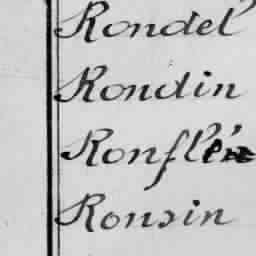 Rondel
Rondin
Ronflén
Ronsin